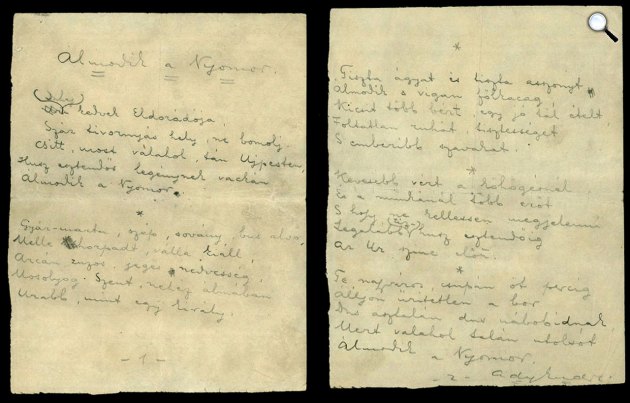 Álmodik a Nyomor.
Úri kedvek Eldorádója,
Száz tivornyás hely, ne bomolj.
Csitt, most valahol, tán Ujpesten,
Husz esztendős legénynek vackán
Álmodik a Nyomor.
*
Gyár-marta, szép, sovány, bús alvó,
Melle horpadt, válla kiáll,
Arcán zuzos, jeges nedvesség,
Mosolyog. Szent, nehéz álmában
Urabb, mint egy király.
- 1 -
*
Tiszta ágyat és tiszta asszonyt
Álmodik s vígan fölkacag,
Kicsit több bért, egy jó tál ételt,
Foltatlan ruhát, tisztességet
S emberibb szavakat.
*
Kevesebb vért a köhögésnél
És a munkánál több erőt
S hogy ne kellessen megjelenni
Legalább husz esztendőig
Az Úr szine előtt.
*
Te, nagyváros, csupán öt percig
Álljon ürítetlen a bor
Dús asztalán dús nábobidnak,
Mert valahol talán utolsót
Álmodik a Nyomor.
- 2 -
Ady Endre.